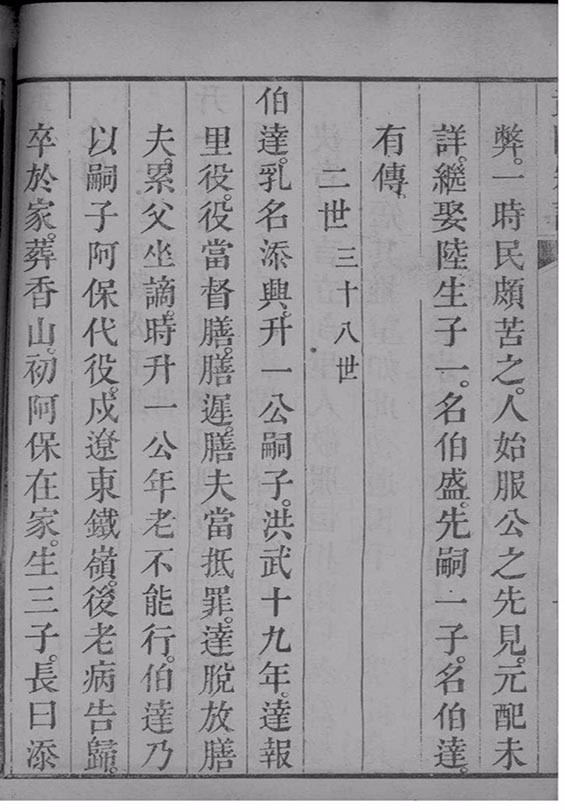 弊。一時民頗苦之。人始服公之先見。元配未
詳。繼娶陸生子一。名伯盛。先嗣一子。名伯達。
有傳。
二世 三十八世
伯達。乳名添興。升一公嗣子。洪武十九年。達報
里役。役當督膳。膳遲。膳夫當抵罪。達脫放膳
夫。累父坐謫。時升一公年老不能行。伯達乃
以嗣子阿保代役。戍遼東鐵嶺。後老病告歸。
卒於家。葬香山。初阿保在家。生三子。長曰添